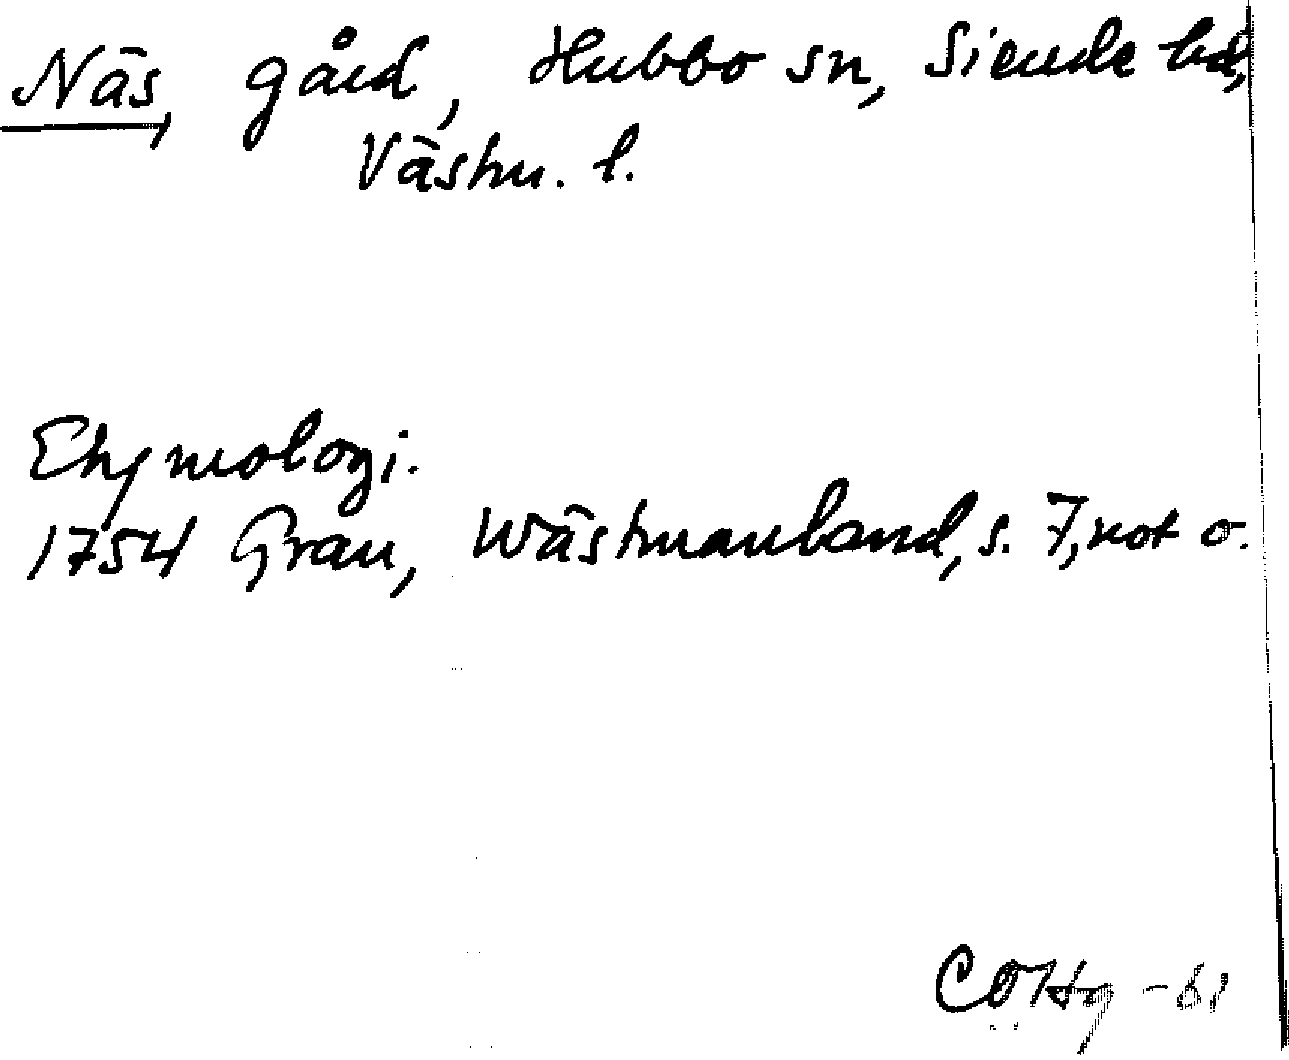 Näs, gård, Hubbo sn, Siende hd,
Västm. l.
Etymologi.
1754 Grau, Wästmanland, s. 7, not o.
COHg -61